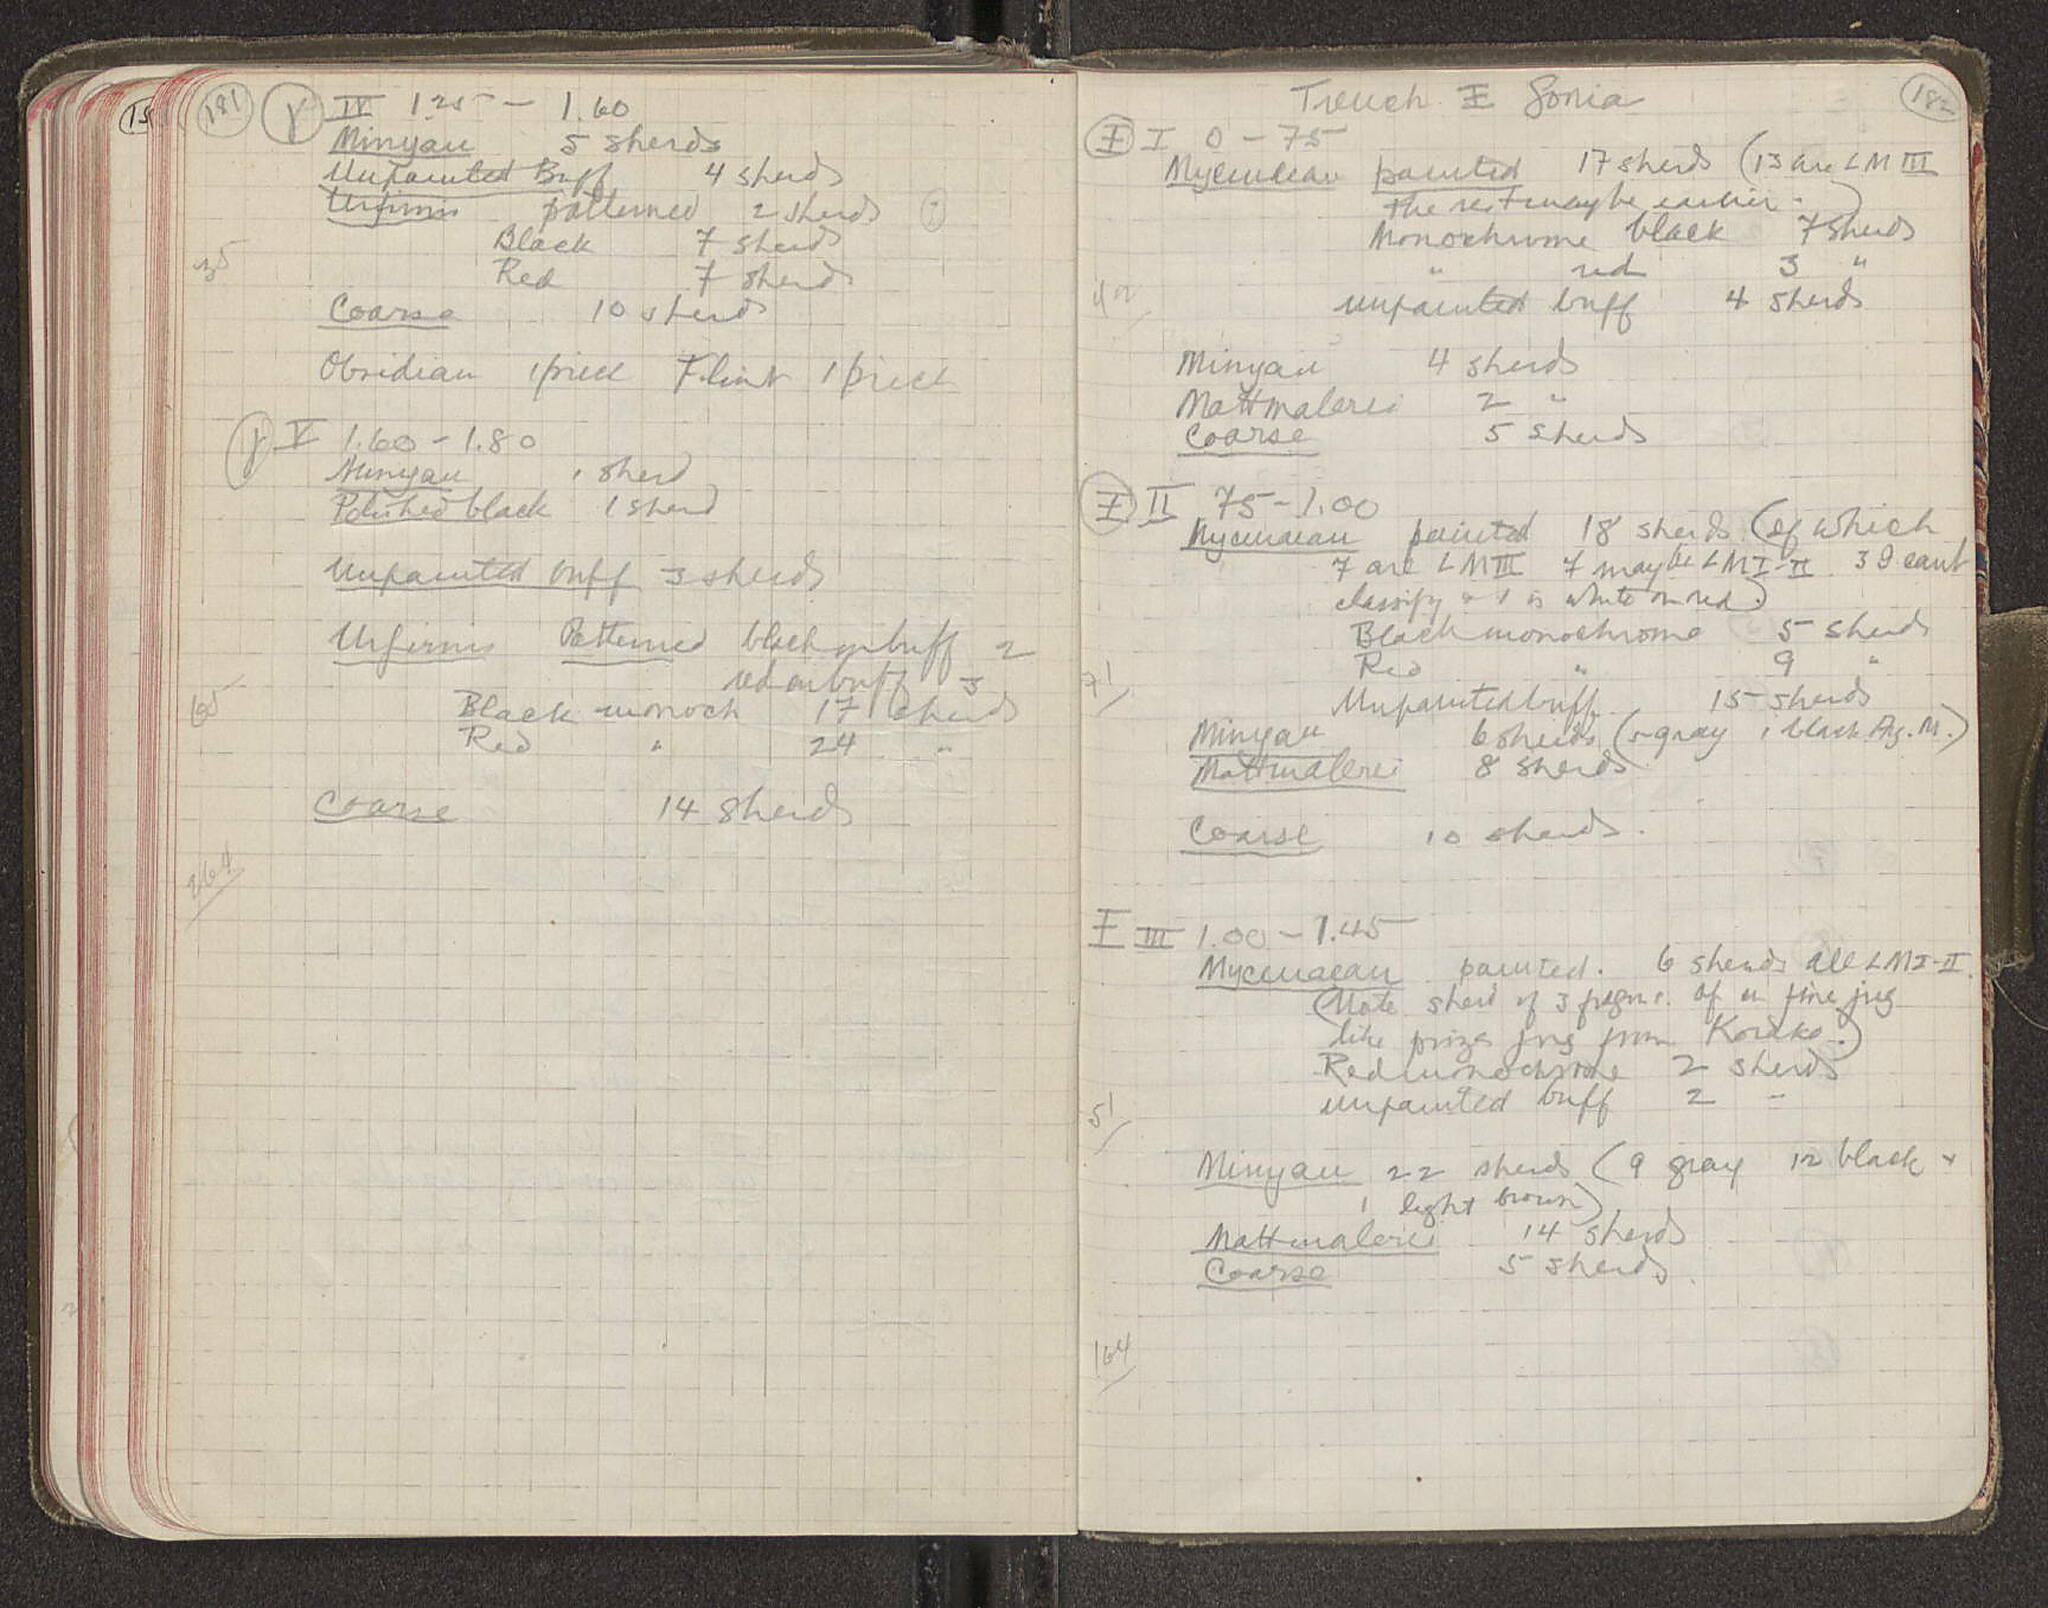 181
γ IV 1.25 — 1.60
Minyan 5 sherds
Unpainted Buff 4 sherds
Urfirnis patterned 2 sherds
Black 7 sherds
35
Red 7 sherds
Coarse 10 sherds
Obsidian 1 piece Flint 1 piece
γ V 1.60 - 1.80
Minyan 1 sherd
Polished black 1 sherd
Unpainted buff 3 sherds
Urfirnis Patterned black on buff 2
red on buff 3
65
Black monoch 17 sherds
Red " 24 "
Coarse 14 sherds
264
182
Trench I Gonia
I I 0 - 75
Mycenaean painted 17 sherds (13 are LM III
the rest may be earlier.)
Monochrome black 7 sherds
" red 3 "
42
unpainted buff 4 sherds
Minyan 4 sherds
Mattmalerei 2 "
Coarse 5 sherds
I II 75 - 1.00
Mycenaean painted 18 sherds (of which
7 are LM III 7 may be LM I-II 3 I cant
classify + 1 is white on red)
Black monochrome 5 sherds
Red " 9 "
71
Unpainted buff 15 sherds
Minyan 6 sherds (5 gray 1 black Arg. M.)
Mattmalerei 8 sherds
Coarse 10 sherds.
I III 1.00 - 1.45
Mycenaean painted. 6 sherds all LM I-II.
(Note sherd of 3 fragms. of a fine jug
like prize jug from Korako.)
Red monochrome 2 sherds
unpainted buff 2 "
51
Minyan 22 sherds (9 gray 12 black +
1 light brown)
Mattmalerei 14 sherds
Coarse 5 sherds.
164